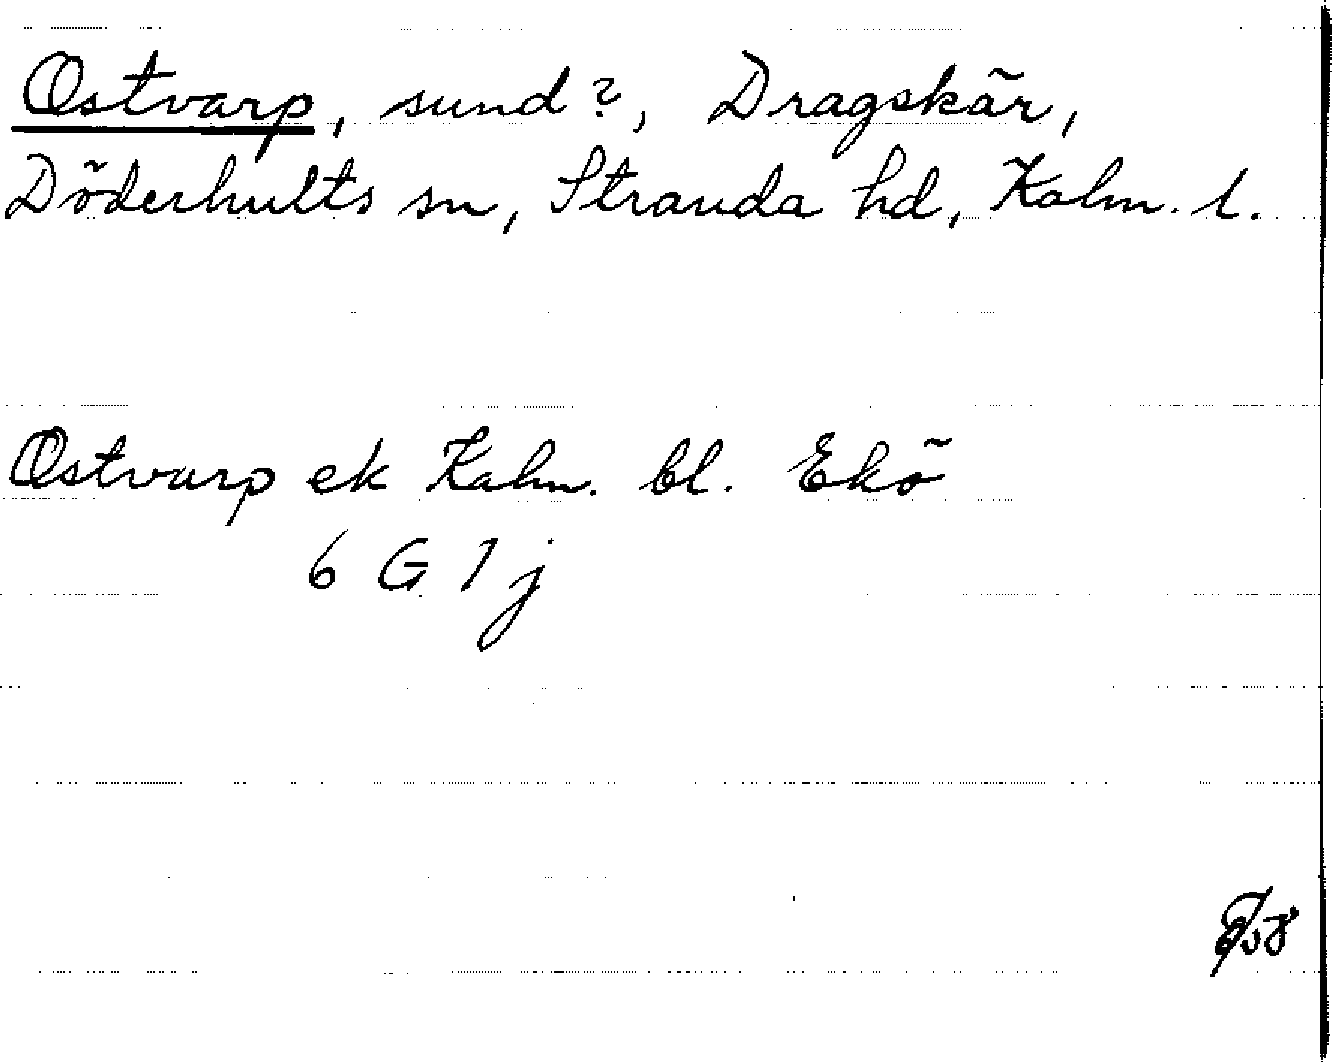 Ostvarp, sund?, Dragskär,
Döderhults sn, Stranda hd, Kalm. l.
Ostvarp ek Kalm. bl. Ekö
6 G 1 j